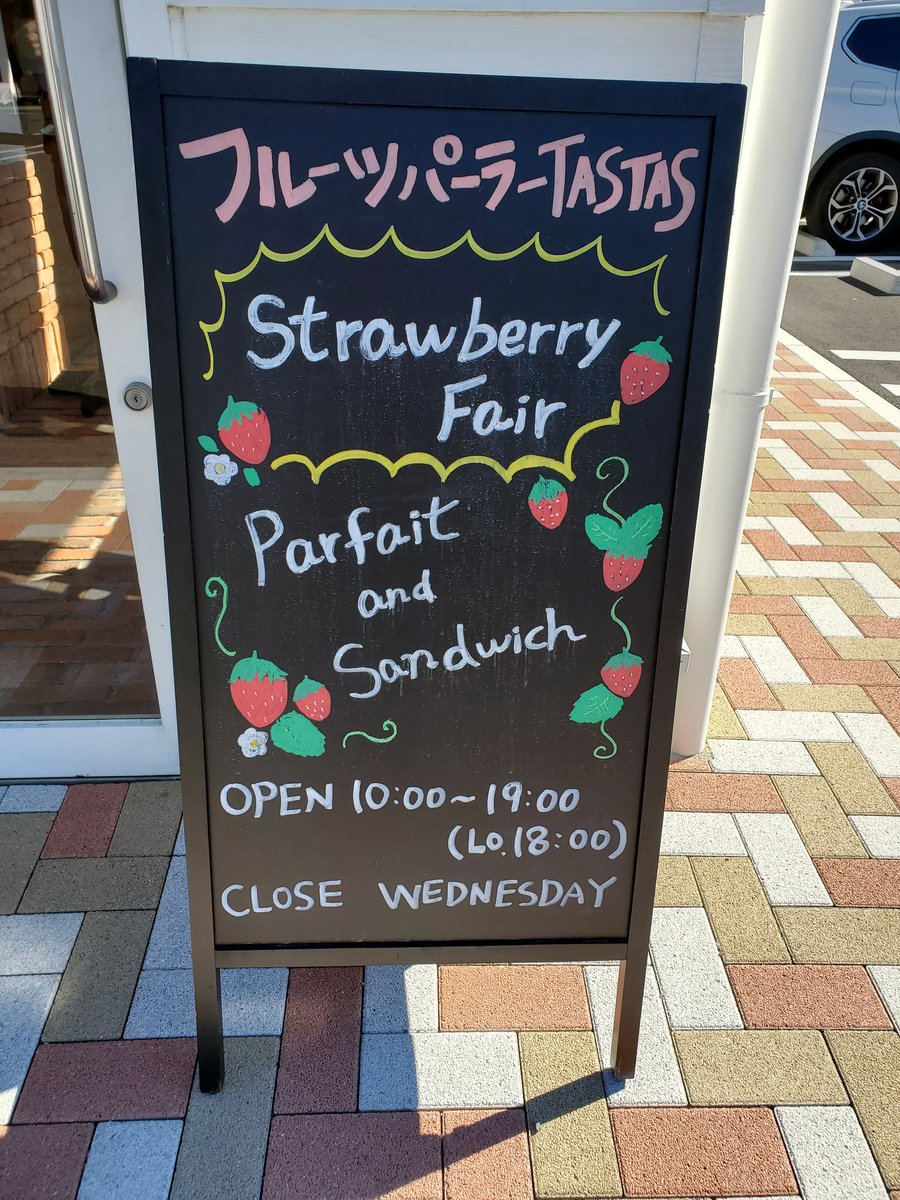 フルーツパーラーTASTAS
Strawberry
Fair
Parfait
and
Sandwich
OPEN 10:00~19:00
(Lo.18:00)
CLOSE WEDNESDAY